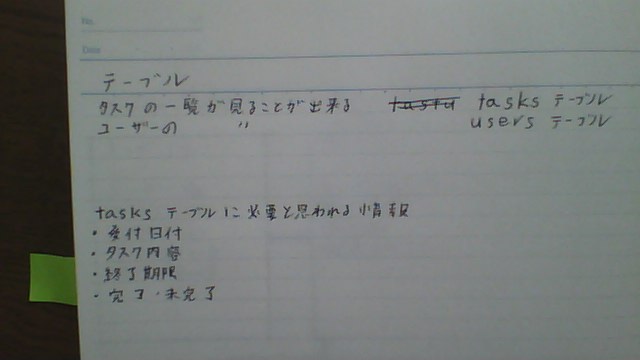 テーブル
タスクの一覧が見ることが出来る tasks テーブル
ユーザーの 〃 users テーブル
tasks テーブルに必要と思われる情報
・受付日付
・タスク内容
・終了期限
・完了・未完了